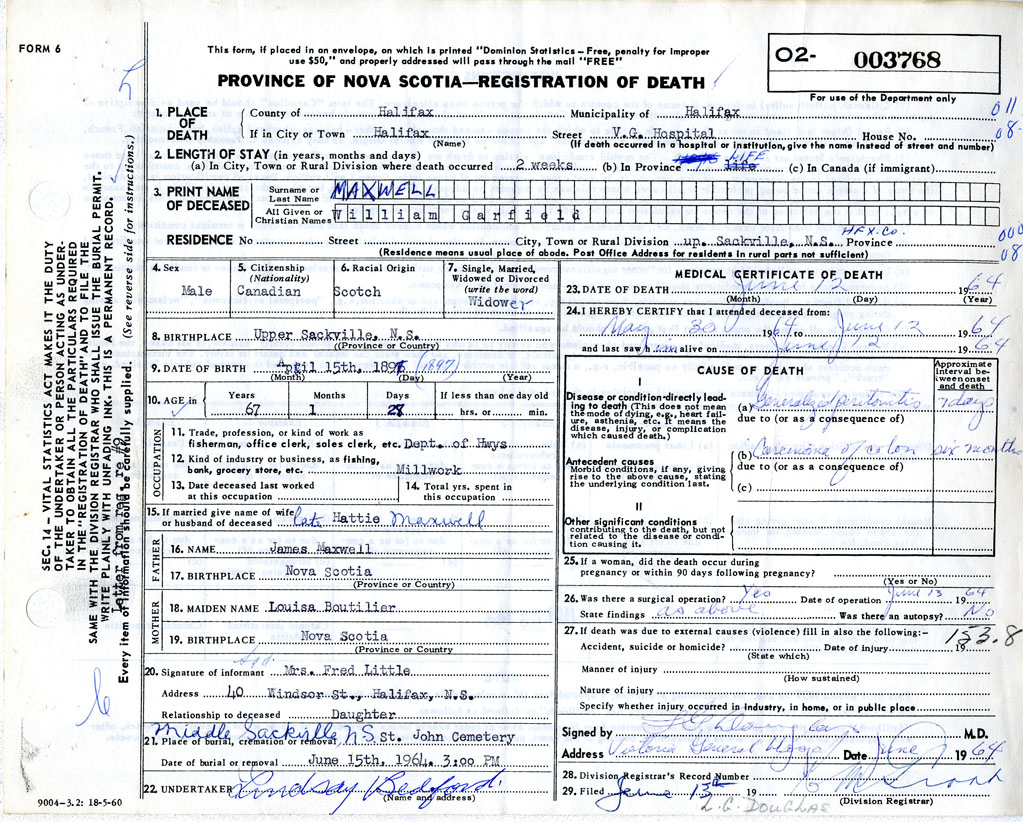 FORM 6
This form, if placed in an envelope, on which is printed "Dominion Statistics – Free, penalty for improper
use $50," and properly addressed will pass through the mail "FREE"
PROVINCE OF NOVA SCOTIA—REGISTRATION OF DEATH
O2- 003768
For use of the Department only
1. PLACE OF DEATH
County of Halifax Municipality of Halifax 011
If in City or Town Halifax Street V.G. Hospital House No. 08
(Name) (If death occurred in a hospital or institution, give the name instead of street and number)
2. LENGTH OF STAY (in years, months and days)
(a) In City, Town or Rural Division where death occurred 2 weeks (b) In Province LIFE (c) In Canada (if immigrant)
3. PRINT NAME OF DECEASED
Surname or Last Name MAXWELL
All Given or Christian Names William Garfield
HFX. Co. 000
RESIDENCE No Street City, Town or Rural Division up. Sackville, N.S. Province 08
(Residence means usual place of abode. Post Office Address for residents in rural parts not sufficient)
4. Sex Male
5. Citizenship (Nationality) Canadian
6. Racial Origin Scotch
7. Single, Married, Widowed or Divorced (write the word) Widower
8. BIRTHPLACE Upper Sackville, N.S.
(Province or Country)
9. DATE OF BIRTH April 15th, 1897 (1897)
(Month) (Day) (Year)
10. AGE in Years Months Days If less than one day old
67 1 28 hrs. or min.
OCCUPATION
11. Trade, profession, or kind of work as
fisherman, office clerk, sales clerk, etc. Dept. of Hwys
12. Kind of industry or business, as fishing,
bank, grocery store, etc. Millwork
13. Date deceased last worked
at this occupation
14. Total yrs. spent in
this occupation
15. If married give name of wife
or husband of deceased late Hattie Maxwell
FATHER
16. NAME James Maxwell
17. BIRTHPLACE Nova Scotia
(Province or Country)
MOTHER
18. MAIDEN NAME Louisa Boutilier
19. BIRTHPLACE Nova Scotia
(Province or Country
20. Signature of informant Mrs. Fred Little
Address 40 Windsor St., Halifax, N.S.
Relationship to deceased Daughter
Middle Sackville NS
21. Place of burial, cremation or removal St. John Cemetery
Date of burial or removal June 15th, 1964. 3:00 PM
22. UNDERTAKER Lindsay Bedford.
(Name and address)
9004–3.2: 18-5-60
MEDICAL CERTIFICATE OF DEATH
23. DATE OF DEATH June 12 1964
(Month) (Day) (Year)
24. I HEREBY CERTIFY that I attended deceased from:
May 30 1964 to June 12 1964
and last saw him alive on June 12 1964
CAUSE OF DEATH
Approximate interval between onset and death
I
Disease or condition directly leading to death (This does not mean the mode of dying, e.g., heart failure, asthenia, etc. It means the disease, injury, or complication which caused death.)
(a) Generalized peritonitis 7 days
due to (or as a consequence of)
Antecedent causes
Morbid conditions, if any, giving rise to the above cause, stating the underlying condition last.
(b) Carcinoma of colon six months
due to (or as a consequence of)
(c)
II
Other significant conditions
contributing to the death, but not related to the disease or condition causing it.
25. If a woman, did the death occur during
pregnancy or within 90 days following pregnancy?
(Yes or No)
26. Was there a surgical operation? Yes Date of operation June 13 1964
State findings as above Was there an autopsy? No
27. If death was due to external causes (violence) fill in also the following:– 153.8
Accident, suicide or homicide? Date of injury 19
(State which)
Manner of injury
(How sustained)
Nature of injury
Specify whether injury occurred in industry, in home, or in public place
Signed by M.D.
Address Victoria General Hospital Date June 1964
28. Division Registrar's Record Number
29. Filed June 13th 19
(Division Registrar)
L. C. DOUGLAS
SEC. 14 – VITAL STATISTICS ACT MAKES IT THE DUTY
OF THE UNDERTAKER OR PERSON ACTING AS UNDER-
TAKER TO OBTAIN ALL THE PARTICULARS REQUIRED
IN THE "REGISTRATION OF DEATH" AND TO FILE THE
SAME WITH THE DIVISION REGISTRAR WHO SHALL ISSUE THE BURIAL PERMIT.
WRITE PLAINLY WITH UNFADING INK. THIS IS A PERMANENT RECORD.
Letter from md re #9
Every item of information should be carefully supplied. (See reverse side for instructions.)